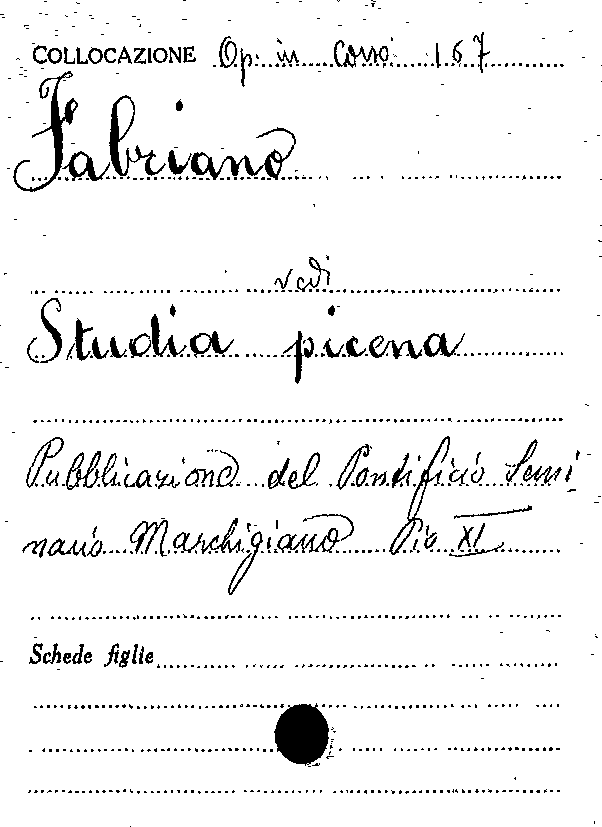 COLLOCAZIONE Op. in Corso 167
Fabriano
vedi
Studia picena
Pubblicazione del Pontificio Semi
nario Marchigiano Pio XI
Schede figlie